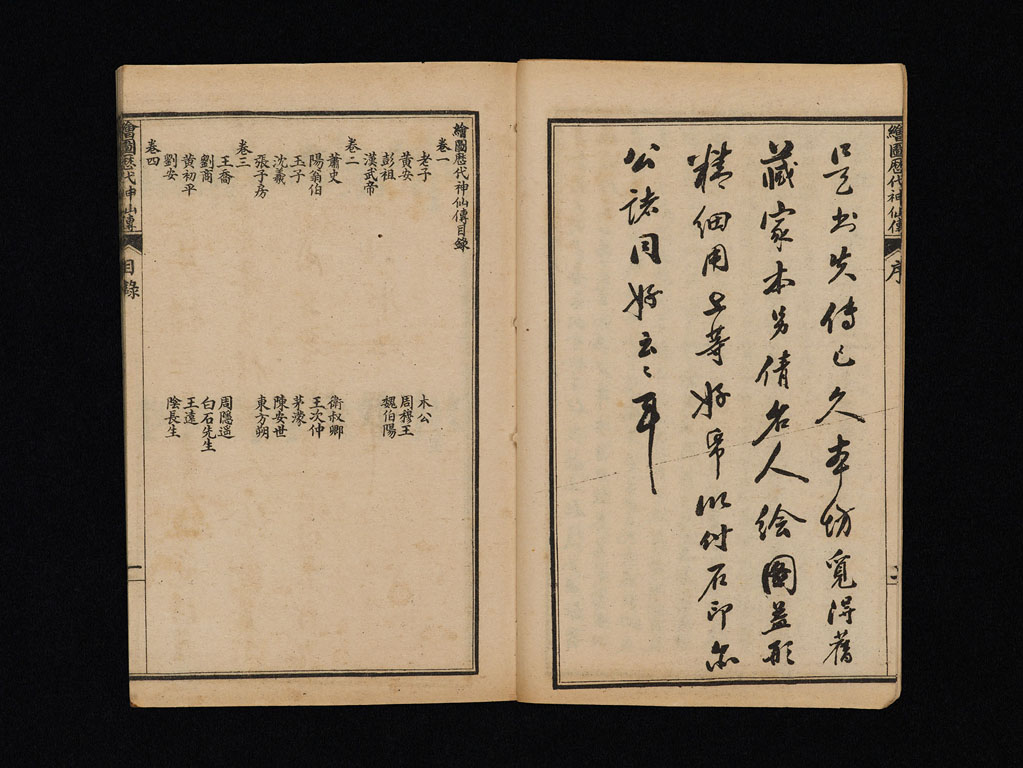 繪圖歷代神仙傳
序
是書失傳已久本坊覓得舊
藏家本另倩名人繪圖益形
精細用上等好帛以付石印公
公諸同好云云耳
繪圖歷代神仙傳目錄
卷一
老子
木公
黃安
周穆王
彭祖
魏伯陽
漢武帝
卷二
蕭史
衛叔卿
陽翁伯
王次仲
玉子
茅濛
沈羲
陳安世
張子房
東方朔
卷三
王喬
周隱遥
劉商
白石先生
黄初平
王遠
劉安
陰長生
卷四
繪圖歷代神仙傳
目錄
一